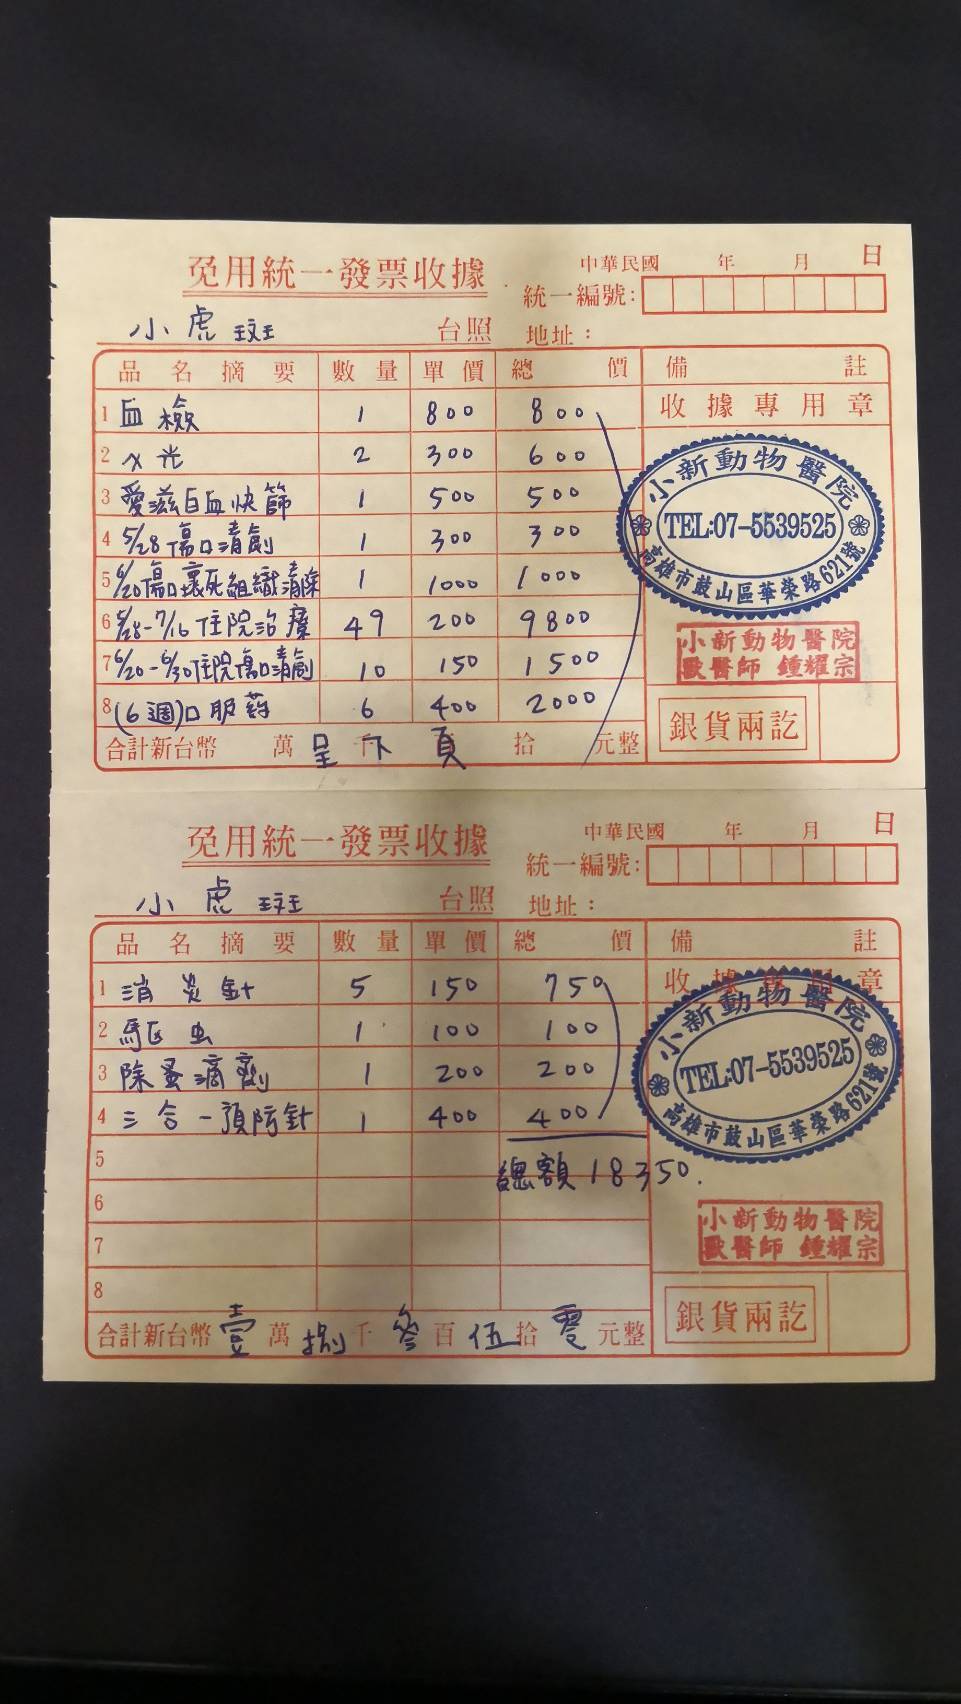 免用統一發票收據
中華民國 年 月 日
統一編號:
小虎斑 台照 地址:
品名摘要 數量 單價 總價 備註
收據專用章
1 血檢 1 800 800
2 X光 2 300 600
3 愛滋白血快篩 1 500 500
4 5/28傷口清創 1 300 300
5 6/20傷口壞死組織清除 1 1000 1000
6 5/28-7/16住院治療 49 200 9800
7 6/20-6/30住院傷口清創 10 150 1500
8 (6週)口服葯 6 400 2000
小新動物醫院
TEL:07-5539525
高雄市鼓山區華榮路621號
小新動物醫院
獸醫師 鍾耀宗
銀貨兩訖
合計新台幣 萬 呈 千 下 頁 拾 元整
免用統一發票收據
中華民國 年 月 日
統一編號:
小虎斑 台照 地址:
品名摘要 數量 單價 總價 備註
收據專用章
1 消炎針 5 150 750
2 驅虫 1 100 100
3 除蚤滴劑 1 200 200
4 三合一預防針 1 400 400
5
總額18350.
6
7
8
小新動物醫院
TEL:07-5539525
高雄市鼓山區華榮路621號
小新動物醫院
獸醫師 鍾耀宗
銀貨兩訖
合計新台幣 壹 萬 捌 千 叁 百 伍 拾 零 元整